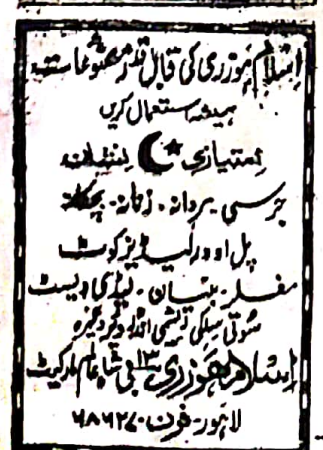 اسلام ہوزری کی قابل قدر مصنوعات
ہمیشہ استعمال کریں
امتیازی نشان
جرسی۔ مردانہ۔ زنانہ۔ بچگانہ
پل اوور لیڈیز کوٹ
مفلر۔ بنیان۔ لیڈی ویسٹ
سوتی سلکی ریشمی انڈرویر وغیرہ
اسلام ہوزری ۱۱۳ بی شاہ عالم مارکیٹ
لاہور۔ فون ۶۸۶۲۷